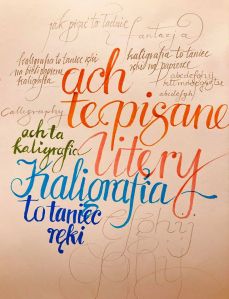 jak pisać to ładnie
fantazja
kaligrafia to taniec ręki
na bielutkim
kaligrafia
kaligrafia to taniec
ręki na papierze
abcdefghij
klmno
abcdefgh
Calligraphy
ach
te pisane
litery
ach ta
kaligrafia
Kaligrafia
to taniec
ręki